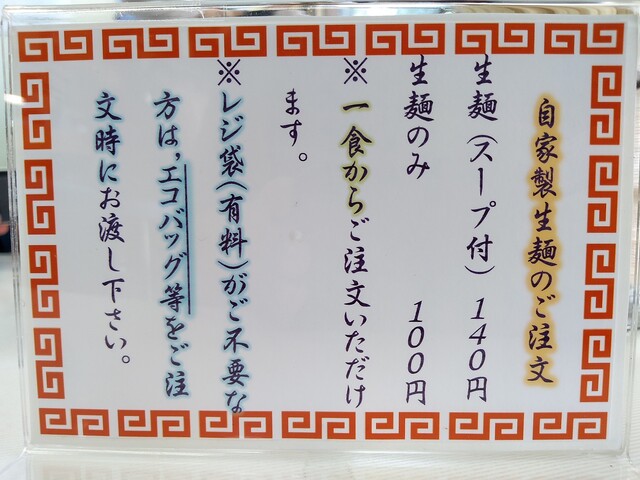 自家製生麺のご注文
生麺（スープ付）140円
生麺のみ 100円
※一食からご注文いただけ
ます。
※レジ袋（有料）がご不要な
方は，エコバッグ等をご注
文時にお渡し下さい。